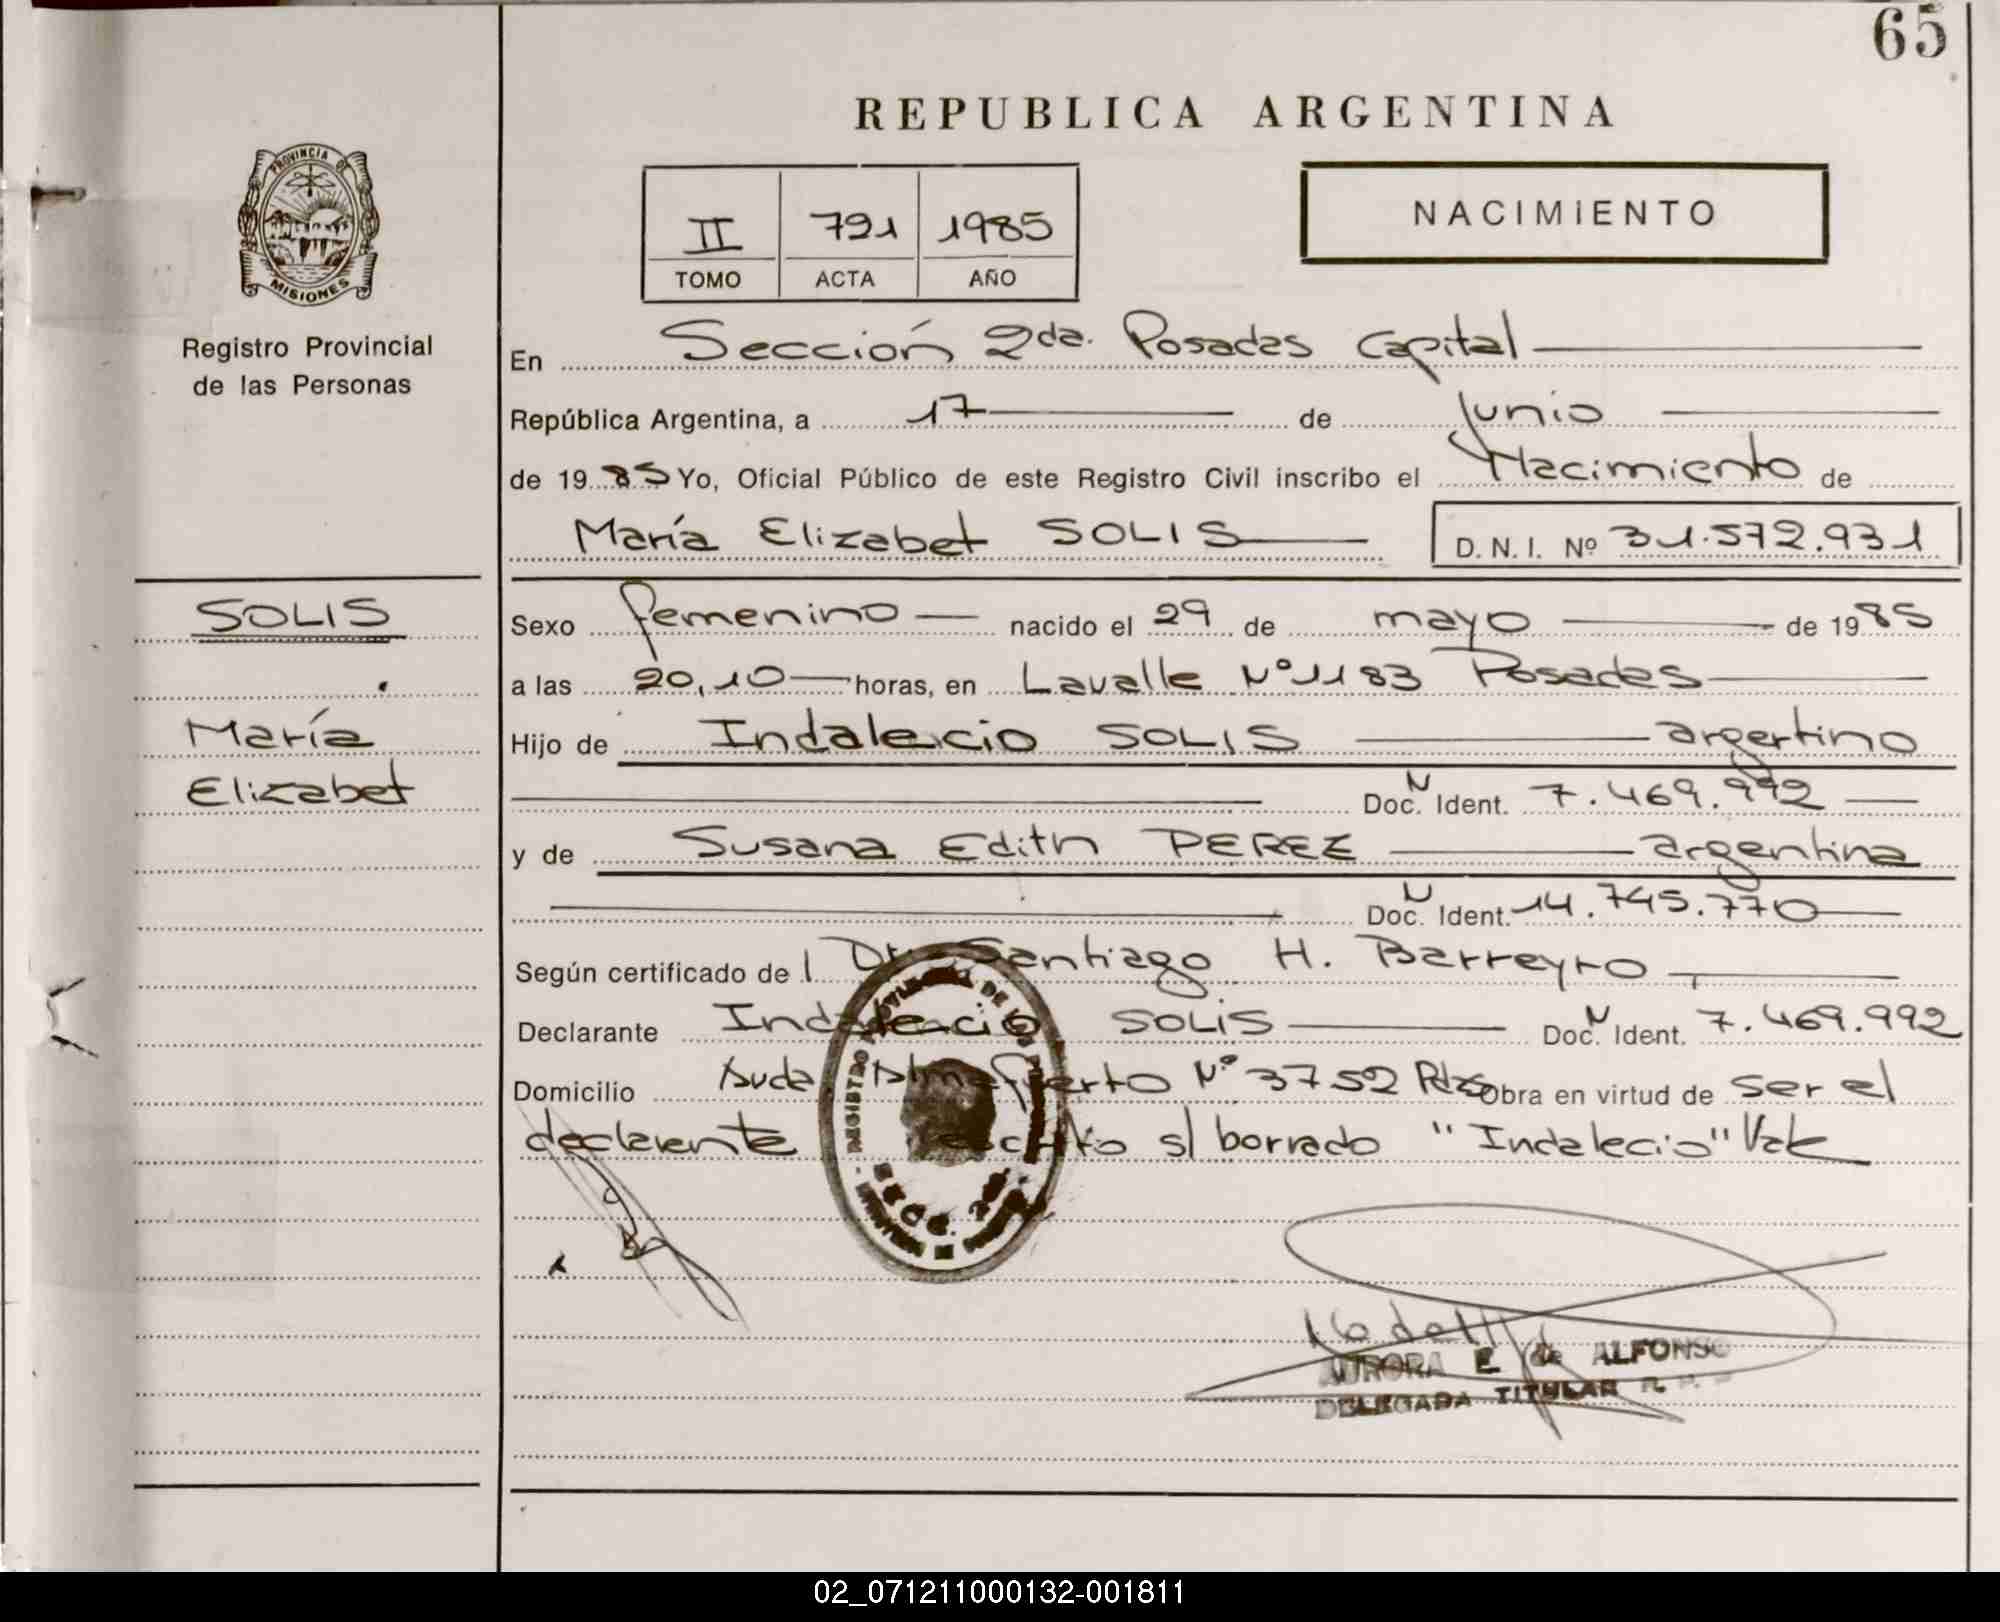 65
REPUBLICA ARGENTINA
PROVINCIA DE
MISIONES
Registro Provincial
de las Personas
II 791 1985
TOMO ACTA AÑO
NACIMIENTO
En Sección 2da. Posadas Capital
República Argentina, a 17 de Junio
de 1985 Yo, Oficial Público de este Registro Civil inscribo el Nacimiento de
María Elizabet SOLIS D. N. I. Nº 31.572.931
SOLIS
María
Elizabet
Sexo femenino nacido el 29 de mayo de 1985
a las 20,10 horas, en Lavalle Nº 1183 Posadas
Hijo de Indalecio SOLIS argentino
Doc. N Ident. 7.469.992
y de Susana Edith PEREZ argentina
Doc. N Ident. 14.745.770
Según certificado de Dr. Santiago H. Barreyro
Declarante Indalecio SOLIS Doc. N Ident. 7.469.992
Domicilio Avda. Almafuerte Nº 3752 Pdas Obra en virtud de ser el
declarante s/ borrado "Indalecio" Vale
REGISTRO
SECC. 2da
AURORA E. de ALFONSO
DELEGADA TITULAR R. P.
02_071211000132-001811